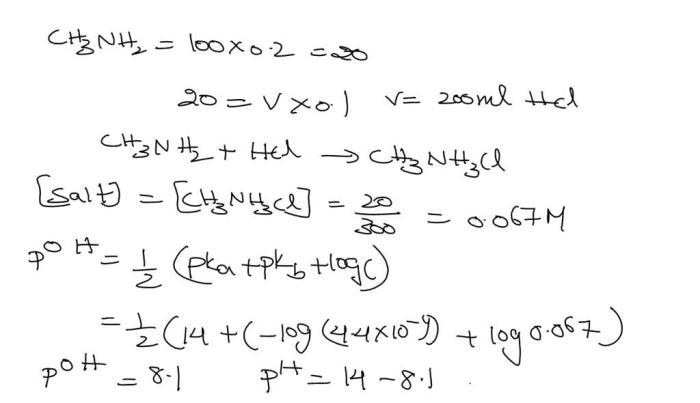 CH3NH2 = 100×0.2 = 20
20 = V×0.1 V= 200ml Hcl
CH3NH2 + Hcl → CH3NH3Cl
[Salt] = [CH3NH3Cl] = 20/300 = 0.067M
pOH = 1/2 (pka+pkb+logC)
= 1/2 (14 + (-log (4.4×10^-4)) + log 0.067)
pOH = 8.1 pH = 14 - 8.1